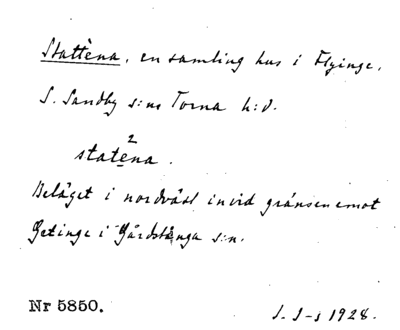 Stattèna, en samling hus i Flyinge,
S. Sandby s:ns Torna h:d.
2
statena.
Beläget i nordväst invid gränsen emot
Getinge i Gårdstånga s:n.
Nr 5850.
1928.